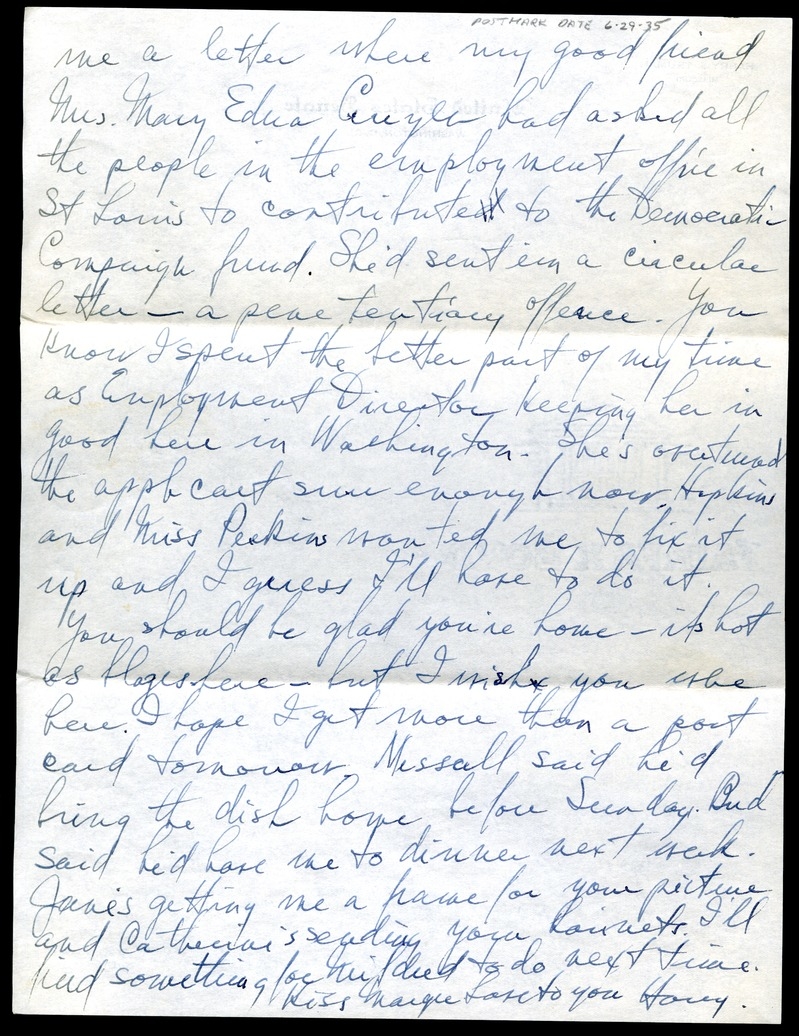 POSTMARK DATE 6-29-35
me a letter where my good friend
Mrs. Mary Edna Cruzen had asked all
the people in the employment office in
St Louis to contribute to the Democratic
Campaign fund. She'd sent em a circular
letter — a penetentiary offence. You
know I spent the better part of my time
as Employment Director keeping her in
good here in Washington. She's overturned
the apple cart sure enough now. Hopkins
and Miss Perkins wanted me to fix it
up and I guess I'll have to do it.
You should be glad you're home — its hot
as blazes here — but I wish you were
here. I hope I get more than a post
card tomorrow. Messall said he'd
bring the dish home before Sunday. Bud
said he'd have me to dinner next week.
Jane's getting me a frame for your picture
and Catherine's sending your hairnets. I'll
find something for Mildred to do next time.
Kiss Margie Love to you Harry.